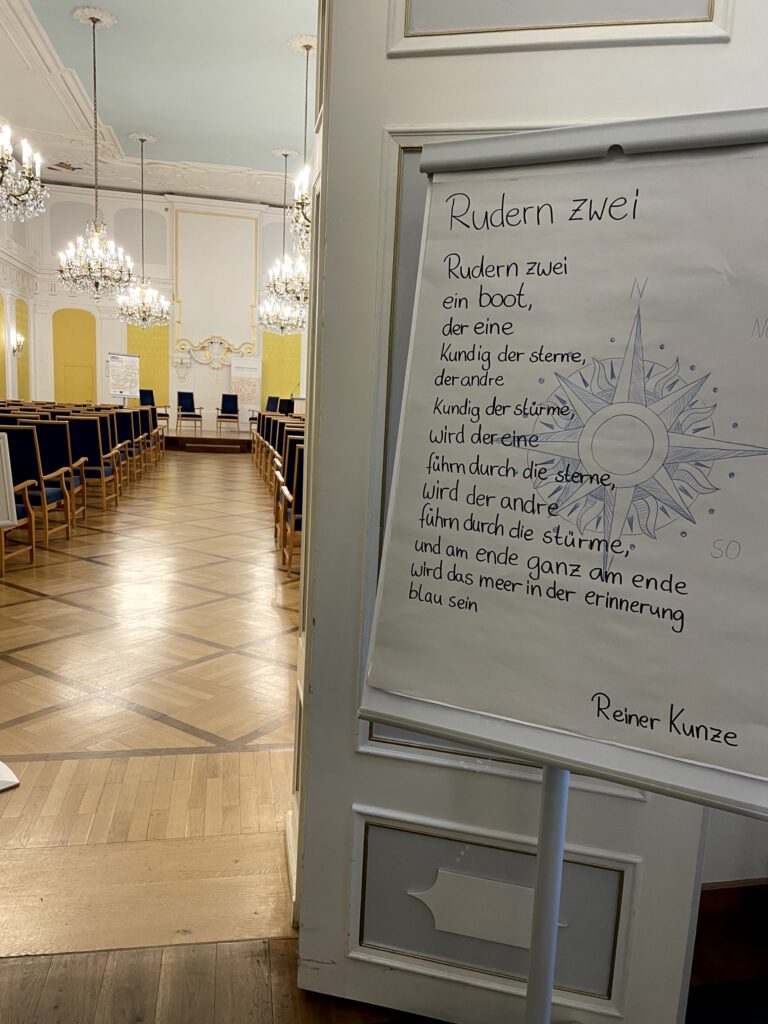 Rudern zwei
Rudern zwei
ein boot,
der eine
Kundig der sterne,
der andre
Kundig der stürme,
wird der eine
führn durch die sterne,
wird der andre
führn durch die stürme,
und am ende ganz am ende
wird das meer in der erinnerung
blau sein
Reiner Kunze
N
SO